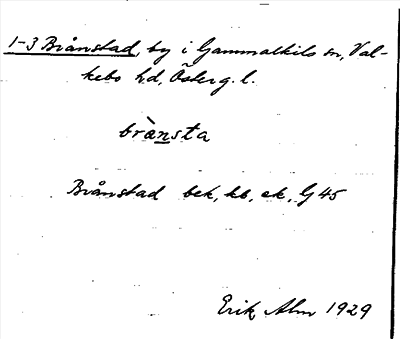 1-3 Brånstad, by i Gammalkils sn, Val-
kebo hd, Österg. l.
brànsta
Brånstad bek, kb, ek, G 45
Erik Alm 1929